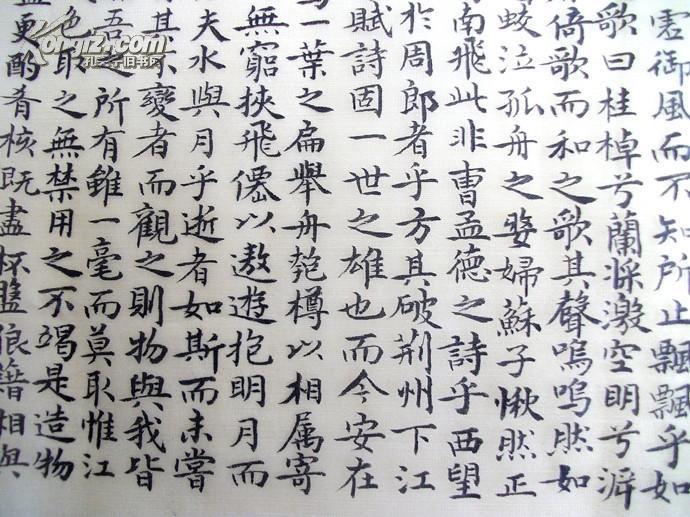 虛御風而不知所止飄飄乎如
歌曰桂棹兮蘭槳激空明兮泝
倚歌而和之歌其聲嗚嗚然如
蛟泣孤舟之嫠婦蘇子愀然正
南飛此非曹孟德之詩乎西望
於周郎者乎方其破荆州下江
賦詩固一世之雄也而今安在
一葉之扁舉舟匏樽以相属寄
無窮挾飛僊以遨遊抱明月而
夫水與月乎逝者如斯而未嘗
其不變者而觀之則物與我皆
吾之所有雖一毫而莫取惟江
色取之無禁用之不竭是造物
更酌肴核既盡杯盤狼籍相與
孔夫子旧书网